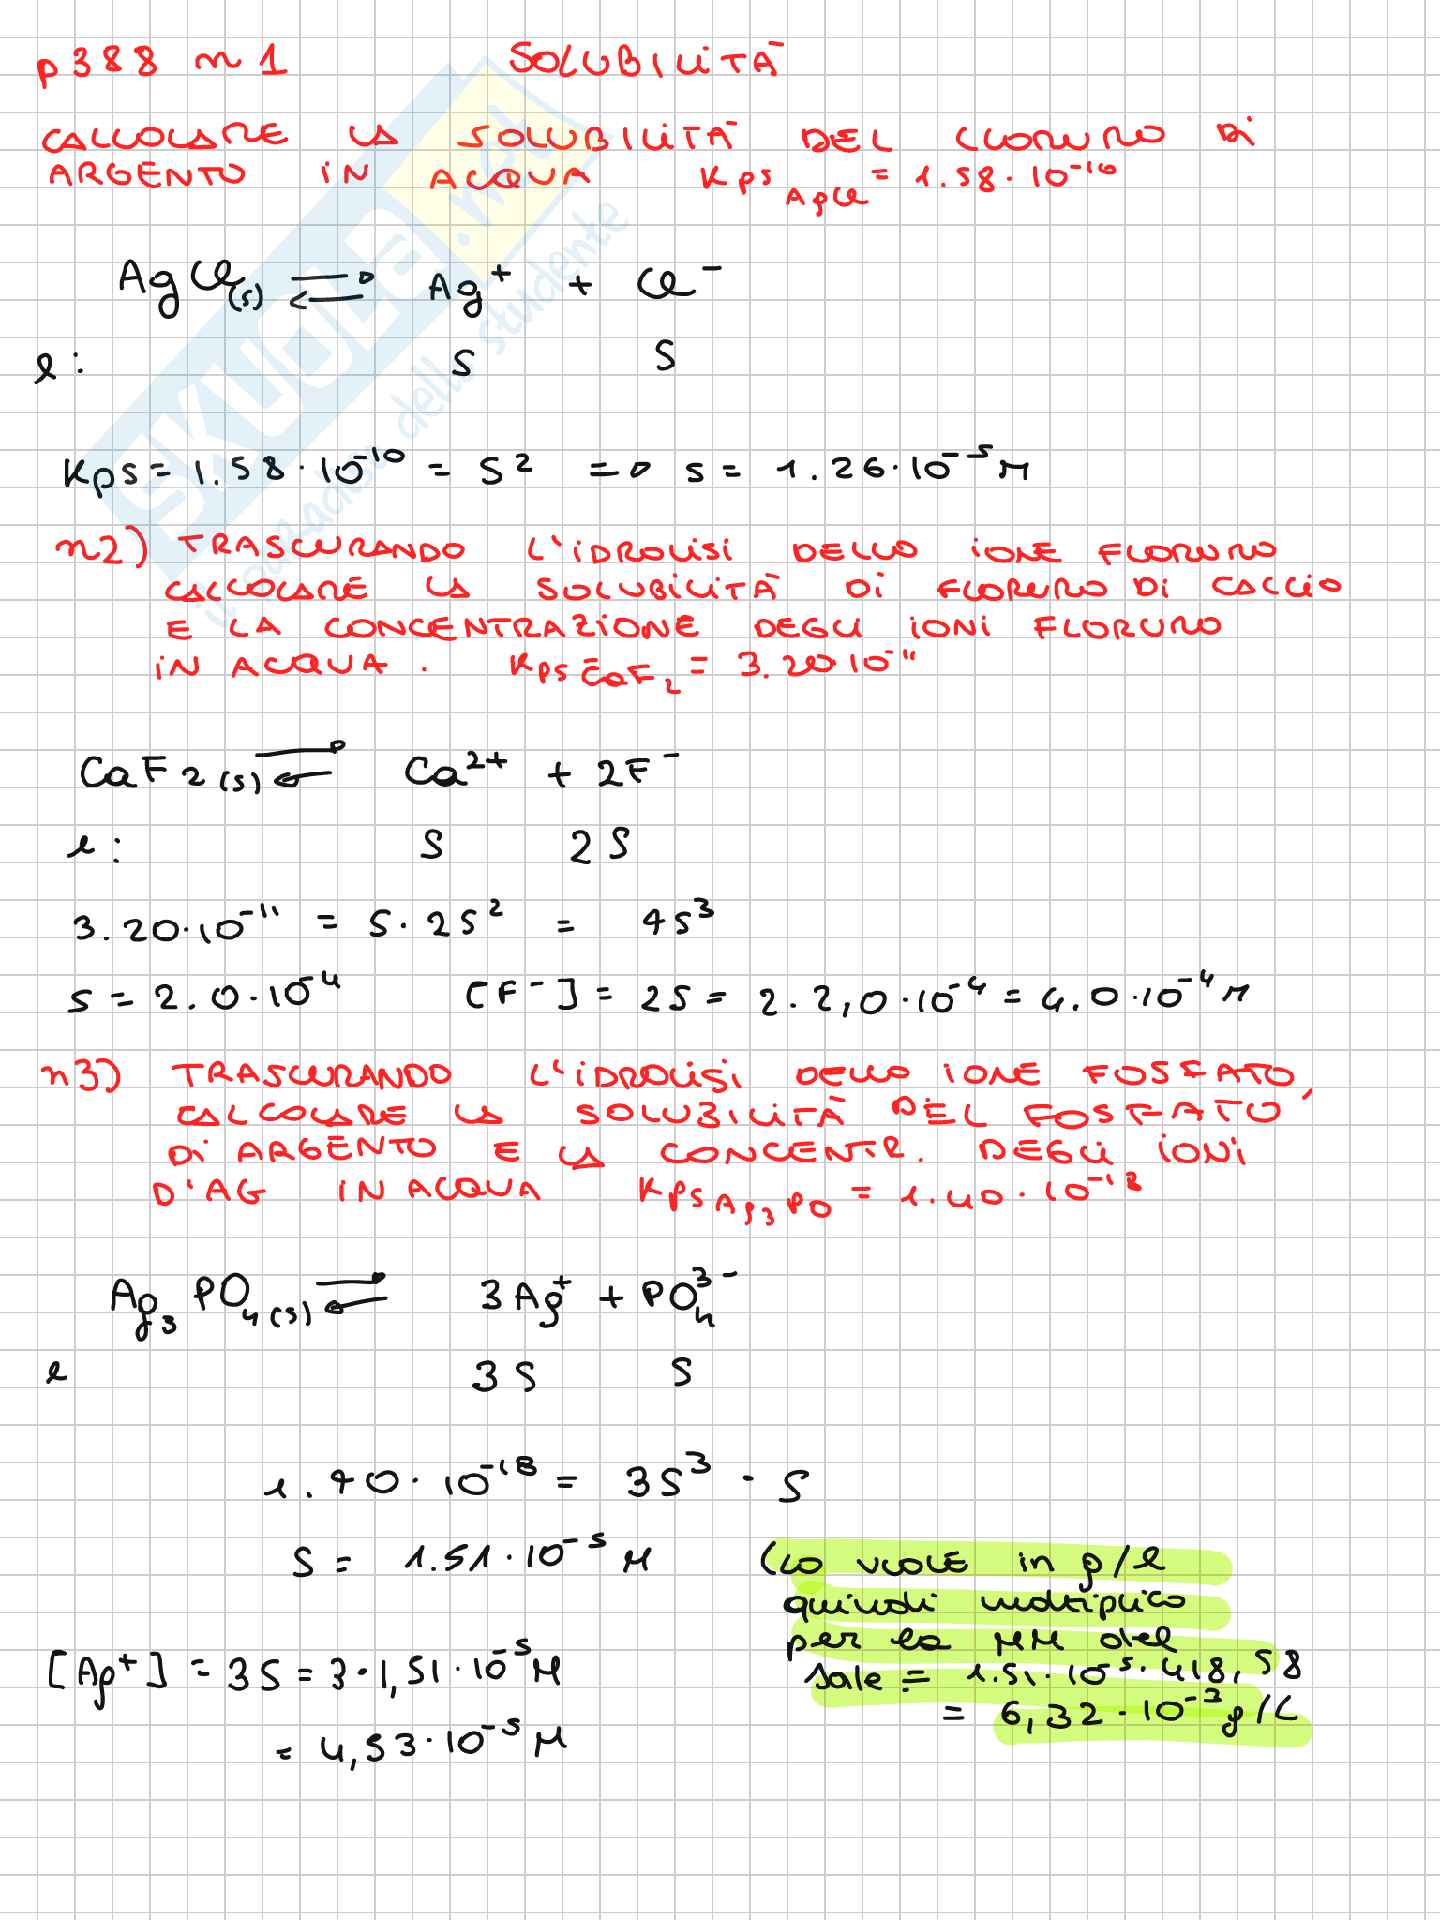 p388 n 1 SOLUBILITÀ
CALCOLARE LA SOLUBILITÀ DEL CLORURO DI
ARGENTO IN ACQUA Kps AgCl = 1.58·10⁻¹⁰
AgCl(s) ⇌ Ag⁺ + Cl⁻
e: S S
Kps = 1.58·10⁻¹⁰ = S² => S = 1.26·10⁻⁵ M
n2) TRASCURANDO L'IDROLISI DELLO IONE FLORURO
CALCOLARE LA SOLUBILITÀ DI FLORURO DI CALCIO
E LA CONCENTRAZIONE DEGLI IONI FLORURO
IN ACQUA. Kps CaF₂ = 3.20·10⁻¹¹
CaF₂(s) ⇌ Ca²⁺ + 2F⁻
e: S 2S
3.20·10⁻¹¹ = S·2S² = 4S³
S = 2.0·10⁻⁴ [F⁻] = 2S = 2·2,0·10⁻⁴ = 4.0·10⁻⁴ M
n3) TRASCURANDO L'IDROLISI DELLO IONE FOSFATO,
CALCOLARE LA SOLUBILITÀ DEL FOSFATO
DI ARGENTO E LA CONCENTR. DEGLI IONI
D'AG IN ACQUA Kps Ag₃PO = 1.40·10⁻¹⁸
Ag₃PO₄(s) ⇌ 3Ag⁺ + PO₄³⁻
e 3S S
1.40·10⁻¹⁸ = 3S³ · S
S = 1.51·10⁻⁵ M
[Ag⁺] = 3S = 3·1,51·10⁻⁵ M
= 4,53·10⁻⁵ M
(LO VUOLE in g/l
quindi moltiplico
per la MM del
sale = 1.51·10⁻⁵·418,58
= 6,32·10⁻³ g/L
SKUOLA.net
il paradiso dello studente